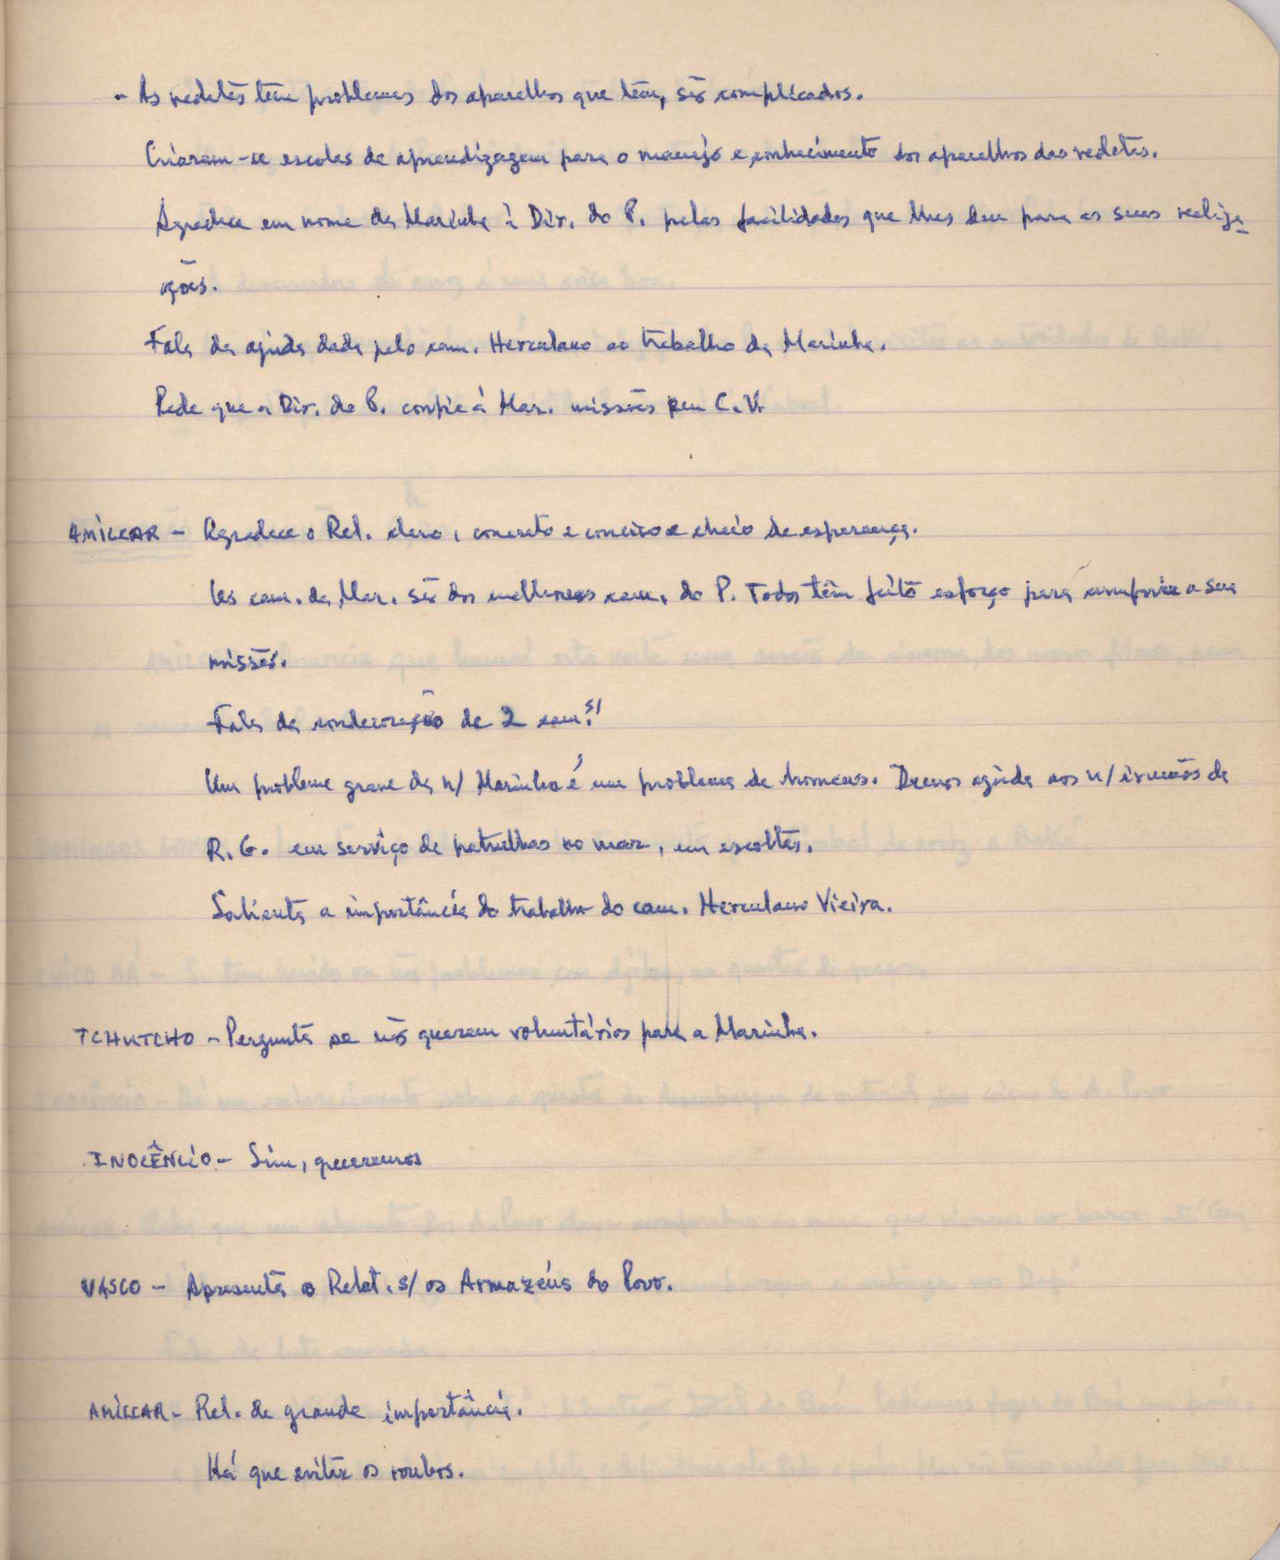 - As vedetas têm problemas dos aparelhos que têm, são complicados.
Criaram-se escolas de aprendizagem para o manejo e conhecimento dos aparelhos das vedetas.
Agradece em nome da Marinha à Dir. do P. pelas facilidades que lhes deu para as suas realiza-
ções.
Fala da ajuda dada pelo cam. Herculano ao trabalho da Marinha.
Pede que a Dir. do P. confie à Mar. missões em C.V.
AMÍLCAR - Agradece o Rel. claro, concreto e conciso e cheio de esperança.
Os cam. da Mar. são dos melhores cam. do P. Todos têm feito esforço para cumprir a sua
missão.
Fala da condecoração de 2 cam.
Um problema grave da n/ Marinha é um problema de homens. Demos ajuda aos n/ irmãos da
R.G. em serviço de patrulhas no mar, em escoltas.
Salienta a importância do trabalho do cam. Herculano Vieira.
TCHUTCHO - Pergunta se não querem voluntários para a Marinha.
INOCÊNCIO - Sim, queremos
VASCO - Apresenta o Relat. s/ os Armazéns do Povo.
AMÍLCAR - Rel. de grande importância.
Há que evitar os roubos.